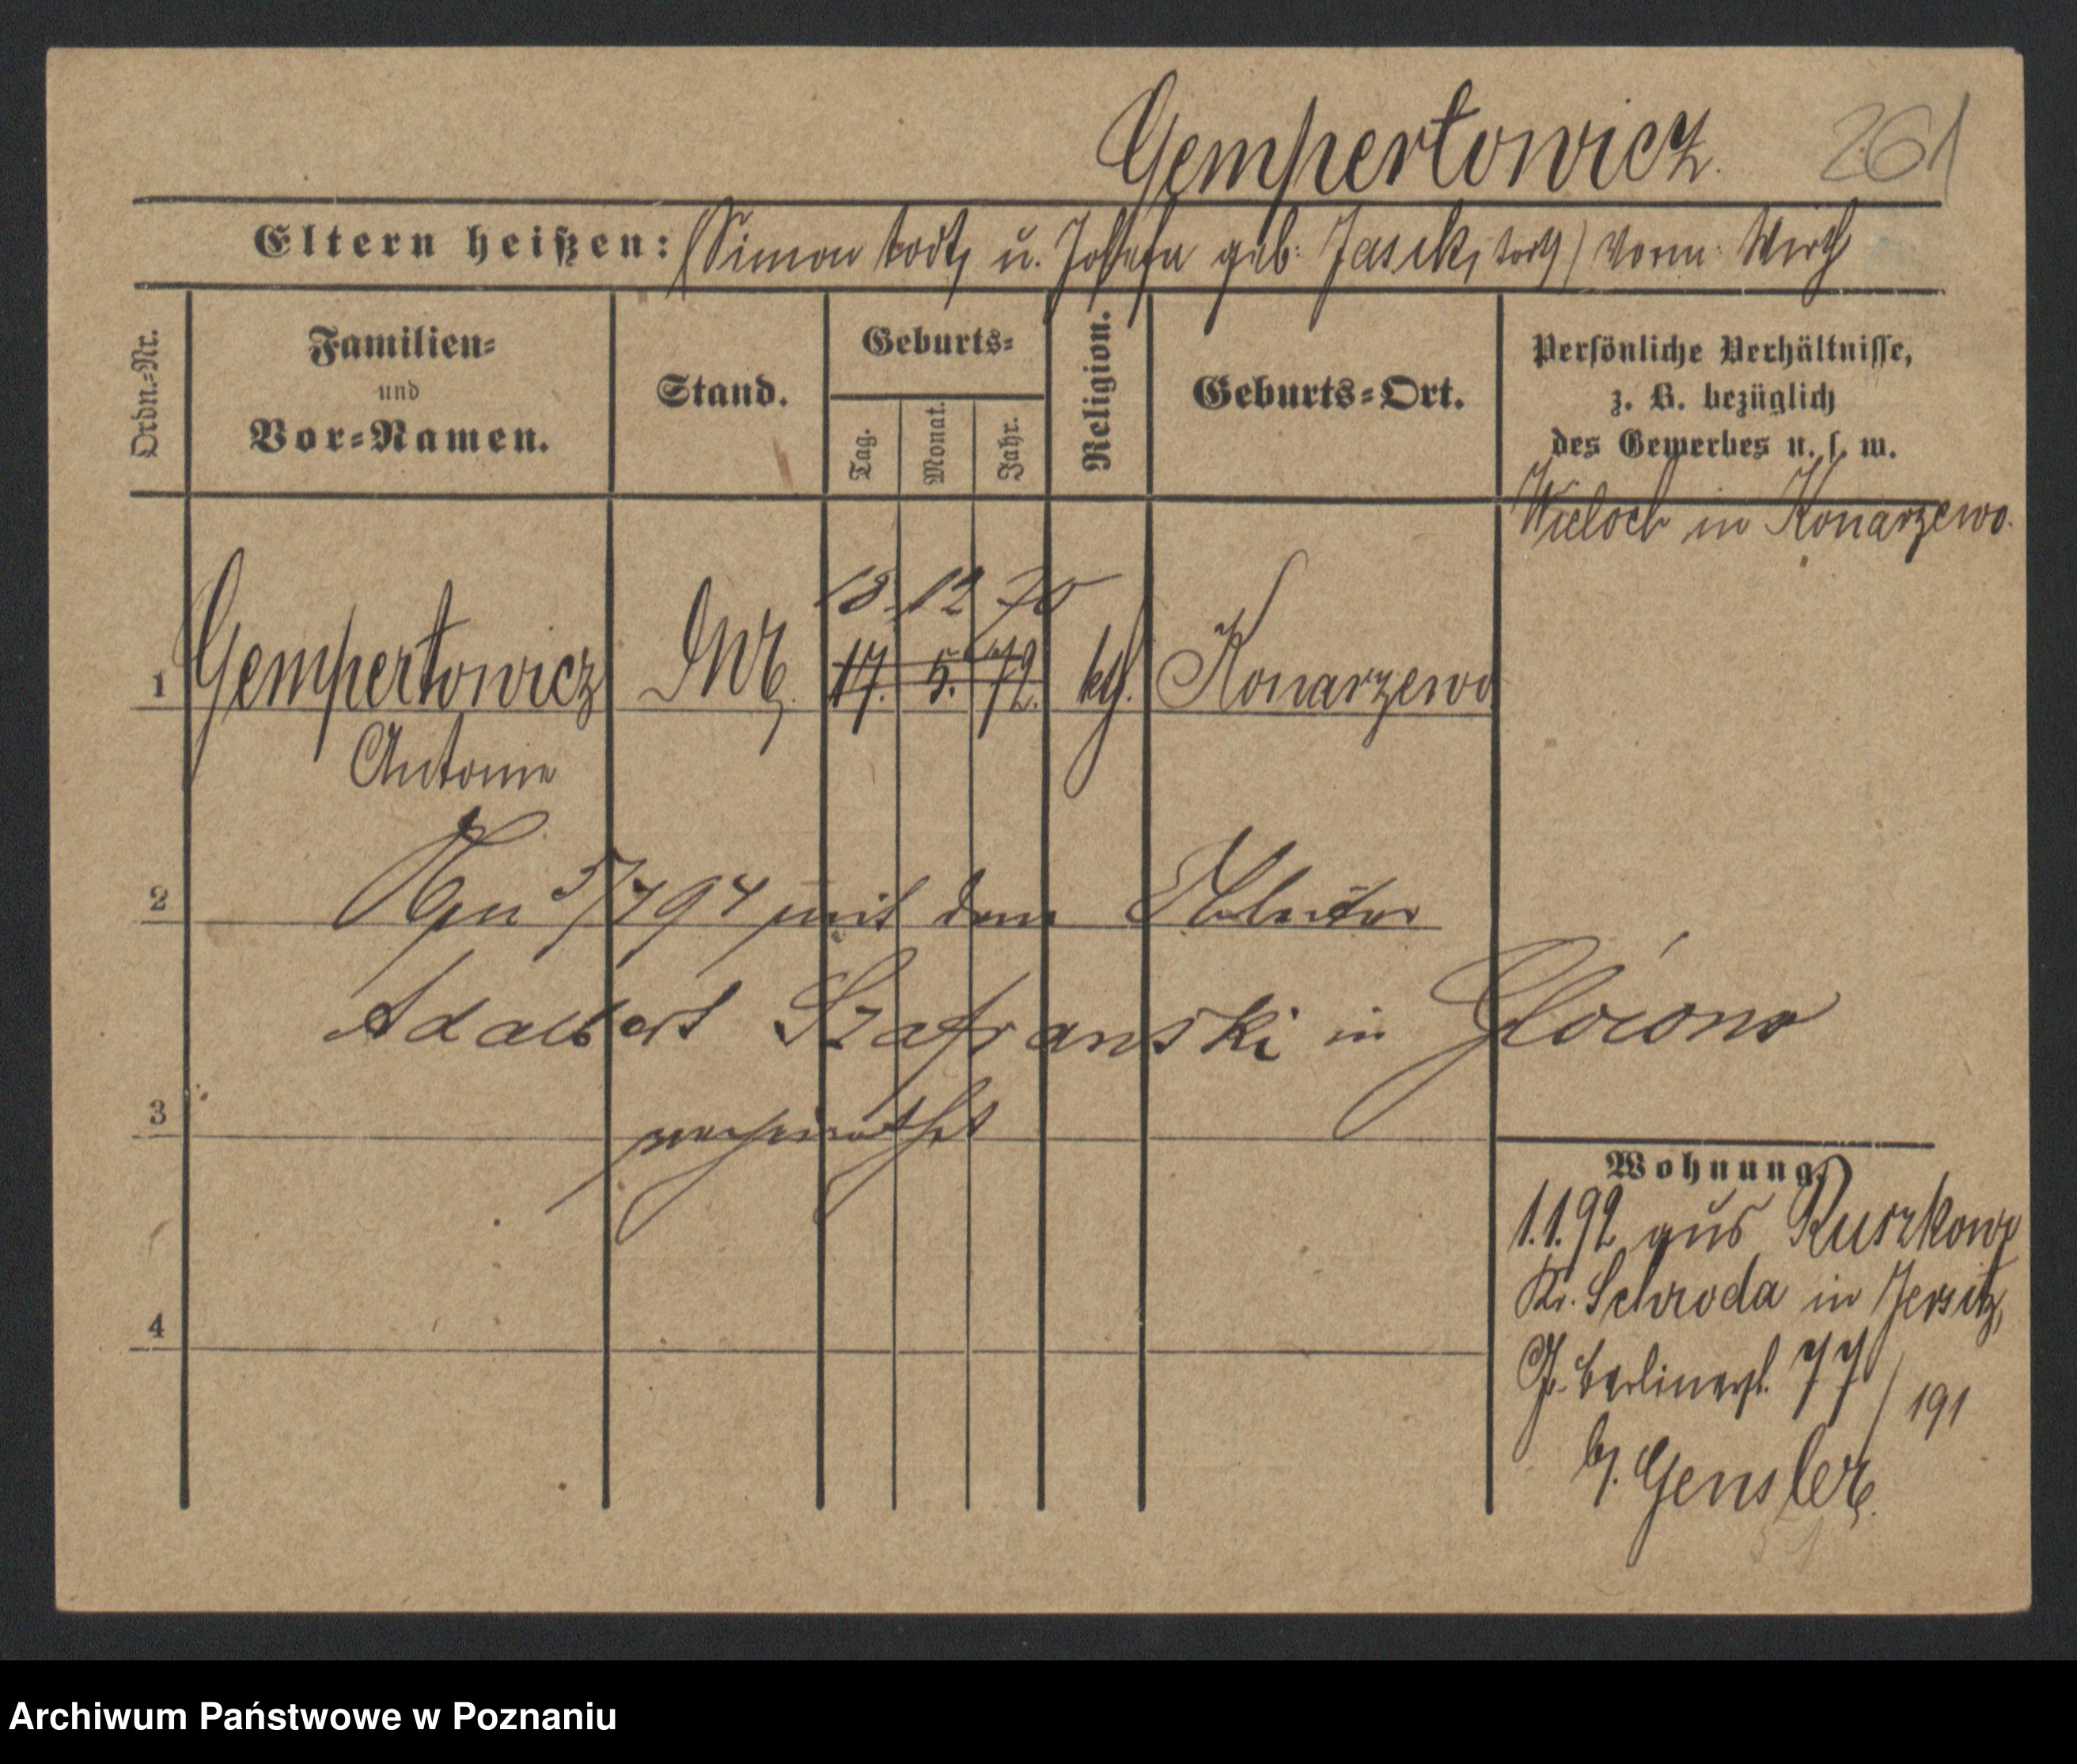 Gempertowicz. 261
Eltern heißen: (Simon todt, u. Josefa geb: Jasik, todt) Vorm: Wirth
Ordn.-Nr.
Familien-
und
Vor-Namen.
Stand.
Geburts-
Tag.
Monat.
Jahr.
Religion.
Geburts-Ort.
Persönliche Verhältnisse,
z. B. bezüglich
des Gewerbes u. s. w.
Wieloch in Konarzewo.
18. 12 70
1 Gempertowicz 17. 5. 72. kth. Konarzewo
Antonie
2 5/7 94 mit dem Arbeiter
Adalbert Szafranski in
3 verheirathet
Wohnung.
1.1.92 aus Ruszkowo
Kr. Schroda in Jersitz,
Berlinerst. 77 / 191
4
b/. Gensler.
Archiwum Państwowe w Poznaniu